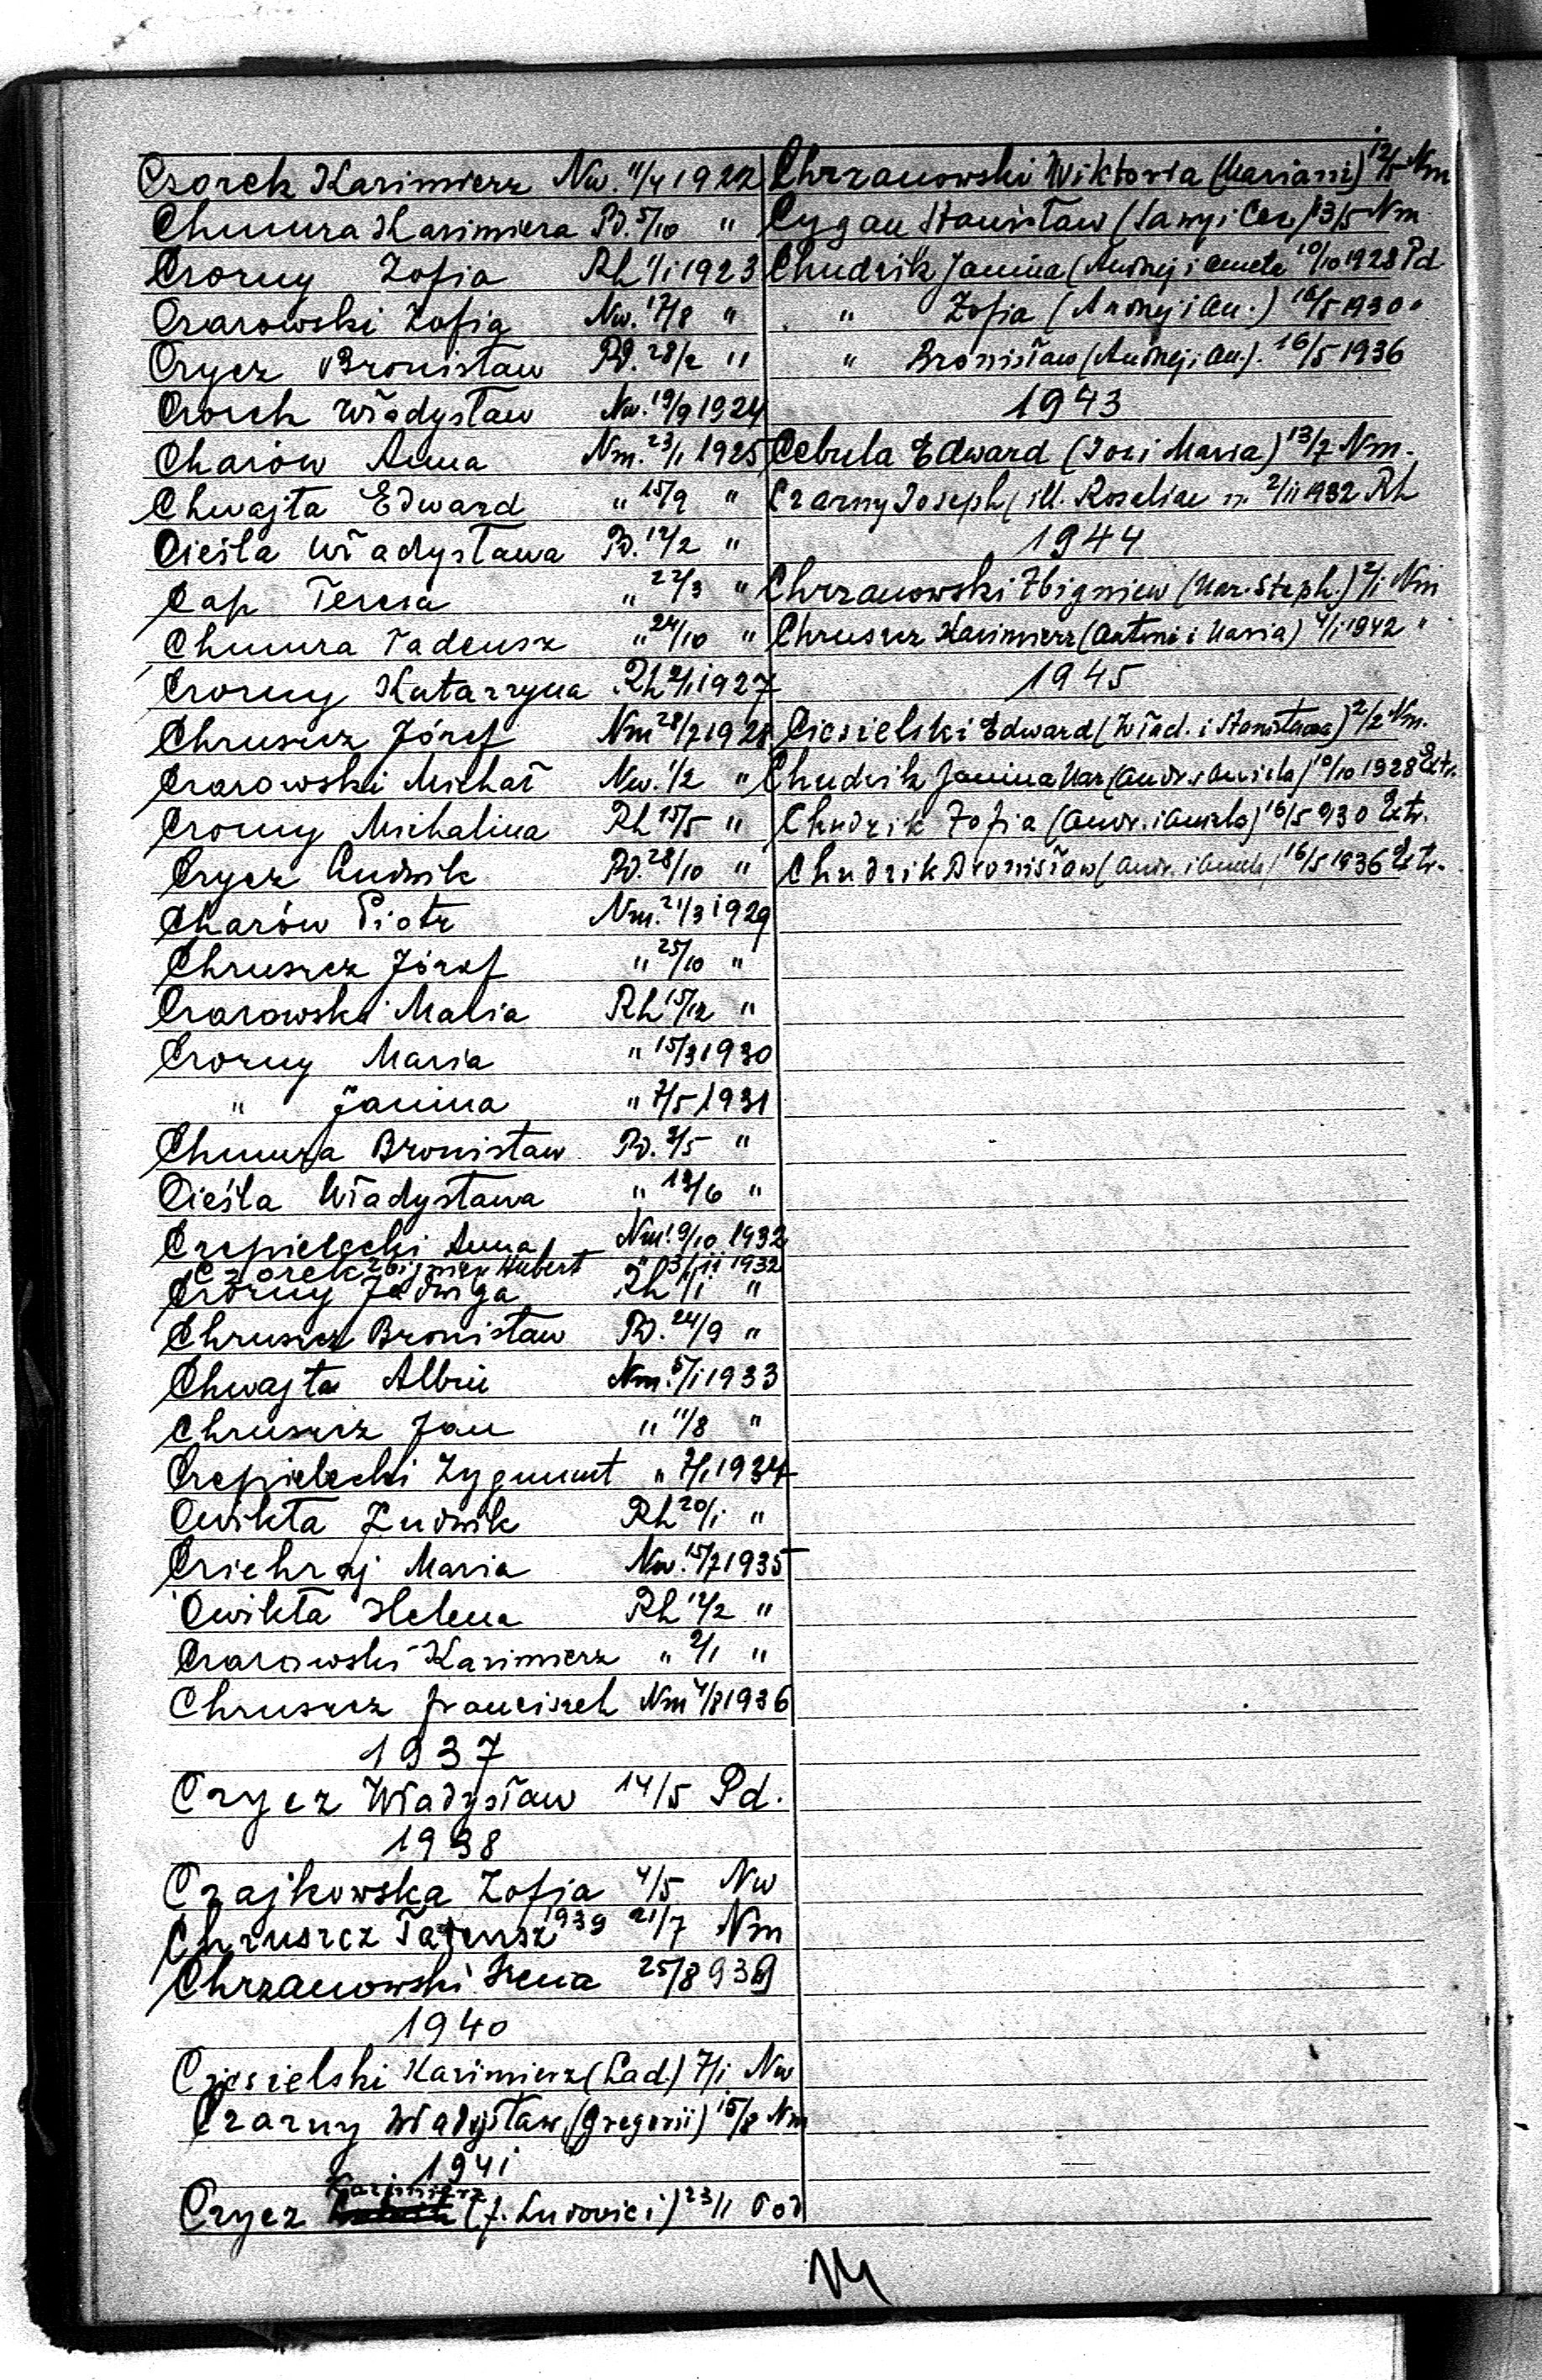 Czorek Kazimierz Nw. 11/4 1922
Chmura Kazimiera Pd. 5/10 "
Czorny Zofia Rh 1/1 1923
Czarowski Zofia Nw. 17/8 "
Czycz Bronisław Pd. 28/2 "
Czorek Władysław Nw. 19/9 1924
Charów Anna Nm. 23/1 1925
Chwajta Edward " 15/9 "
Cieśla Władysława Pd. 12/2 "
Cap Teresa " 22/3 "
Chmura Tadeusz " 24/10 "
Czorny Katarzyna Rh 2/1 1927
Chruszcz Józef Nm 28/7 1928
Czarowski Michał Nw. 1/2 "
Czorny Michalina Rh 15/5 "
Czycz Ludwik Pd. 28/10 "
Charów Piotr Nm. 21/3 1929
Chruszcz Józef " 25/10 "
Czarowski Maria Rh 15/12 "
Czorny Maria " 15/3 1930
" Janina " 7/5 1931
Chmura Bronisław Pd. 2/5 "
Cieśla Władysława " 13/6 "
Czepielecki Anna Nm. 9/10 1932
Czorek Zbigniew Hubert " 3/11 1932
Czorny Jadwiga Rh 1/1 "
Chruszcz Bronisław Pd. 24/9 "
Chwajta Albin Nm. 5/1 1933
Chruszcz Jan " 11/8 "
Czepielecki Zygmunt " 7/1 1934
Cwikta Ludwik Rh 20/1 "
Cziehraj Maria Nw. 15/7 1935
Cwikta Helena Rh 12/2 "
Czarowski Kazimierz " 2/1 "
Chruszcz Franciszek Nm 4/8 1936
1937
Czycz Władysław 14/5 Pd.
1938
Czajkowska Zofja 4/5 Nw
Chruszcz Tadeusz 939 21/7 Nm
Chrzanowski Irena 25/8 939
1940
Ciesielski Kazimierz (Lad.) 7/1 Nw
Czarny Władysław (Gregorii) 15/8 Nm
1941
Czycz Kazimierz (f. Ludovici) 23/11 Pod
Chrzanowski Wiktoria (Mariani) 12/5 Nm
Cygan Stanisław 13/5 Nm
Chudzik Janina (Andrzej i Aniela 10/10 1928 Pd
" Zofia (Andrzej i An.) 16/5 1930 "
" Bronisław (Andrzej i An.). 16/5 1936
1943
Cebula Edward (Jon i Maria) 13/7 Nm.
Czarny Joseph (ill. Rosaliae n. 2/11 1932 Rh
1944
Chrzanowski Zbigniew (Mar. Steph.) 2/1 Nm
Chruszcz Kazimierz (Antoni i Maria) 4/1 1942 "
1945
Ciesielski Edward (Wład. i Stanisława) 2/2 Nm.
Chudzik Janina Mar (Andr. i Aniela) 10/10 1928 Extr.
Chudzik Zofia (Andr. i Aniela) 16/5 930 Extr.
Chudzik Bronisław (Andr. i Aniela) 16/5 1936 Extr.
14